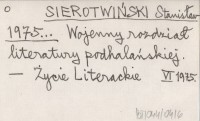 SIEROTWIŃSKI Stanisław
1975... Wojenny rozdział
literatury podhalańskiej.
— Życie Literackie VI 1975.